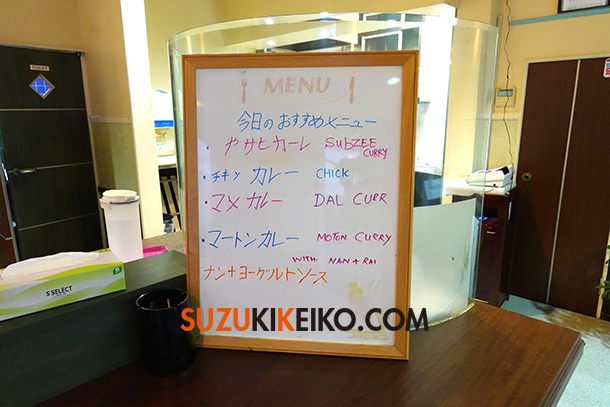 MENU
今日のおすすめメニュー
・ やサヒカーレ SUBZEE CURRY
・チキン カレー CHICK
・マメ カレー DAL CURR
・マートンカレー MOTON CURRY
WITH NAN + RAI
ナン+ヨークルトソース
S SELECT
TOILET
SUZUKIKEIKO.COM